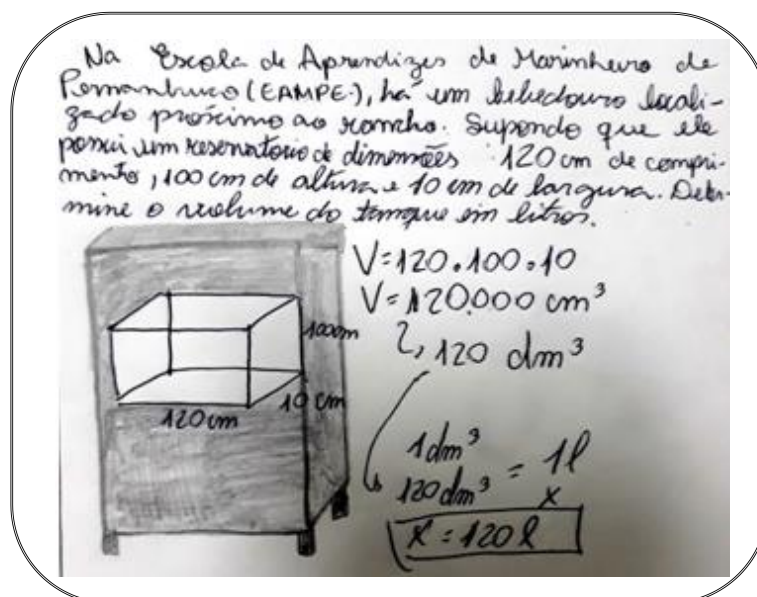 Na Escola de Aprendizes de Marinheiro de
Pernambuco (EAMPE), há um bebedouro locali-
zado próximo ao rancho. Supondo que ele
possui um reservatório de dimensões 120 cm de compri-
mento, 100 cm de altura e 10 cm de largura. Deter-
mine o volume do tanque em litros.
V=120.100.10
V=120.000 cm³
120 dm³
100cm
10 cm
120 cm
1dm³ = 1l
120dm³ x
x = 120 l